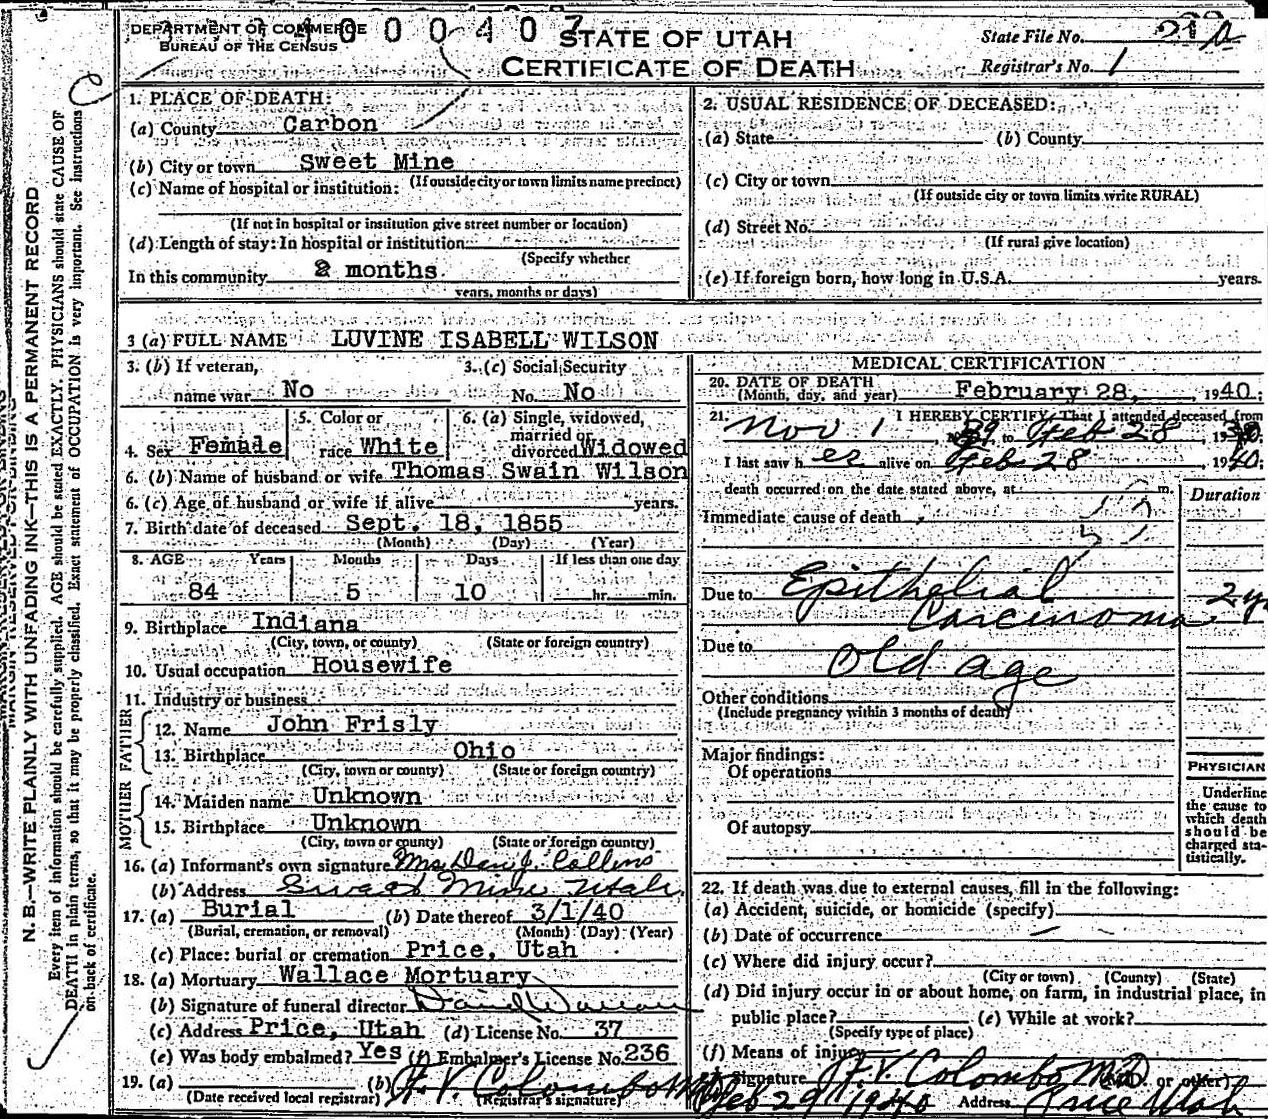 DEPARTMENT OF COMMERCE
BUREAU OF THE CENSUS
STATE OF UTAH
CERTIFICATE OF DEATH
State File No.
Registrar's No. 1
N. B.—WRITE PLAINLY WITH UNFADING INK—THIS IS A PERMANENT RECORD
Every item of information should be carefully supplied. AGE should be stated EXACTLY. PHYSICIANS should state CAUSE OF
DEATH in plain terms, so that it may be properly classified. Exact statement of OCCUPATION is very important. See instructions
on back of certificate.
1. PLACE OF DEATH:
(a) County Carbon
(b) City or town Sweet Mine
(If outside city or town limits name precinct)
(c) Name of hospital or institution:
(If not in hospital or institution give street number or location)
(d) Length of stay: In hospital or institution
(Specify whether
In this community 2 months
years, months or days)
2. USUAL RESIDENCE OF DECEASED:
(a) State (b) County
(c) City or town
(If outside city or town limits write RURAL)
(d) Street No.
(If rural give location)
(e) If foreign born, how long in U.S.A. years.
3 (a) FULL NAME LUVINE ISABELL WILSON
3. (b) If veteran,
name war No
3. (c) Social Security
No. No
4. Sex Female
5. Color or
race White
6. (a) Single, widowed,
married or
divorced Widowed
6. (b) Name of husband or wife Thomas Swain Wilson
6. (c) Age of husband or wife if alive years.
7. Birth date of deceased Sept. 18, 1855
(Month) (Day) (Year)
8. AGE Years Months Days If less than one day
84 5 10 hr. min.
9. Birthplace Indiana
(City, town, or county) (State or foreign country)
10. Usual occupation Housewife
11. Industry or business
FATHER
12. Name John Frisly
13. Birthplace Ohio
(City, town or county) (State or foreign country)
MOTHER
14. Maiden name Unknown
15. Birthplace Unknown
(City, town or county) (State or foreign country)
16. (a) Informant's own signature Mrs Dan J. Collins
(b) Address Mine Utah.
17. (a) Burial (b) Date thereof 3/1/40
(Burial, cremation, or removal) (Month) (Day) (Year)
(c) Place: burial or cremation Price, Utah
18. (a) Mortuary Wallace Mortuary
(b) Signature of funeral director
(c) Address Price, Utah (d) License No. 37
(e) Was body embalmed? Yes (f) Embalmer's License No. 236
19. (a) (b) F. V. Colombo MD
(Date received local registrar) (Registrar's signature)
MEDICAL CERTIFICATION
20. DATE OF DEATH
(Month, day, and year) February 28, 1940;
21. I HEREBY CERTIFY, That I attended deceased from
Nov 1, 39 to Feb 28, 19
I last saw h er alive on Feb 28, 1940;
death occurred on the date stated above, at m.
Duration
Immediate cause of death
Due to Epithelial
Carcinoma
Due to Old age
Other conditions
(Include pregnancy within 3 months of death)
Major findings:
Of operations
Of autopsy
PHYSICIAN
Underline
the cause to
which death
should be
charged sta-
tistically.
22. If death was due to external causes, fill in the following:
(a) Accident, suicide, or homicide (specify)
(b) Date of occurrence
(c) Where did injury occur?
(City or town) (County) (State)
(d) Did injury occur in or about home, on farm, in industrial place, in
public place? (e) While at work?
(Specify type of place)
(f) Means of injury
Signature F. V. Colombo MD or other)
Feb 29 1940 Address Price Utah